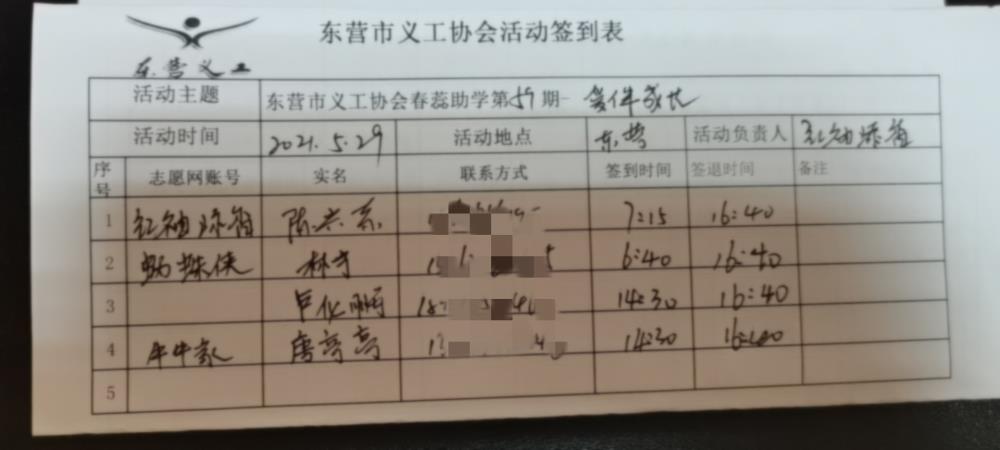 东营市义工协会活动签到表
东营义工
活动主题 东营市义工协会春蕊助学第59期-爱伴成长
活动时间 2021.5.29 活动地点 东营 活动负责人 红袖添香
序号 志愿网账号 实名 联系方式 签到时间 签退时间 备注
1 红袖添香 陈兴东 7:15 16:40
2 蜘蛛侠 林才 6:40 16:40
3 14:30 16:40
4 牛牛家 唐亭亭 14:30 16:40
5